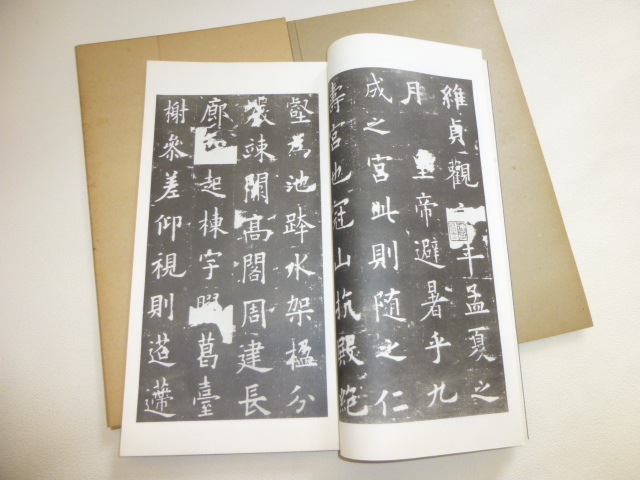 維貞觀年孟夏之
月皇帝避暑乎九
成之宮此則随之仁
壽宮也冠山抗殿絕
壑為池跨水架楹分
巖竦闕高閣周建長
廊起棟宇葛臺
榭叅差仰視則迢遰